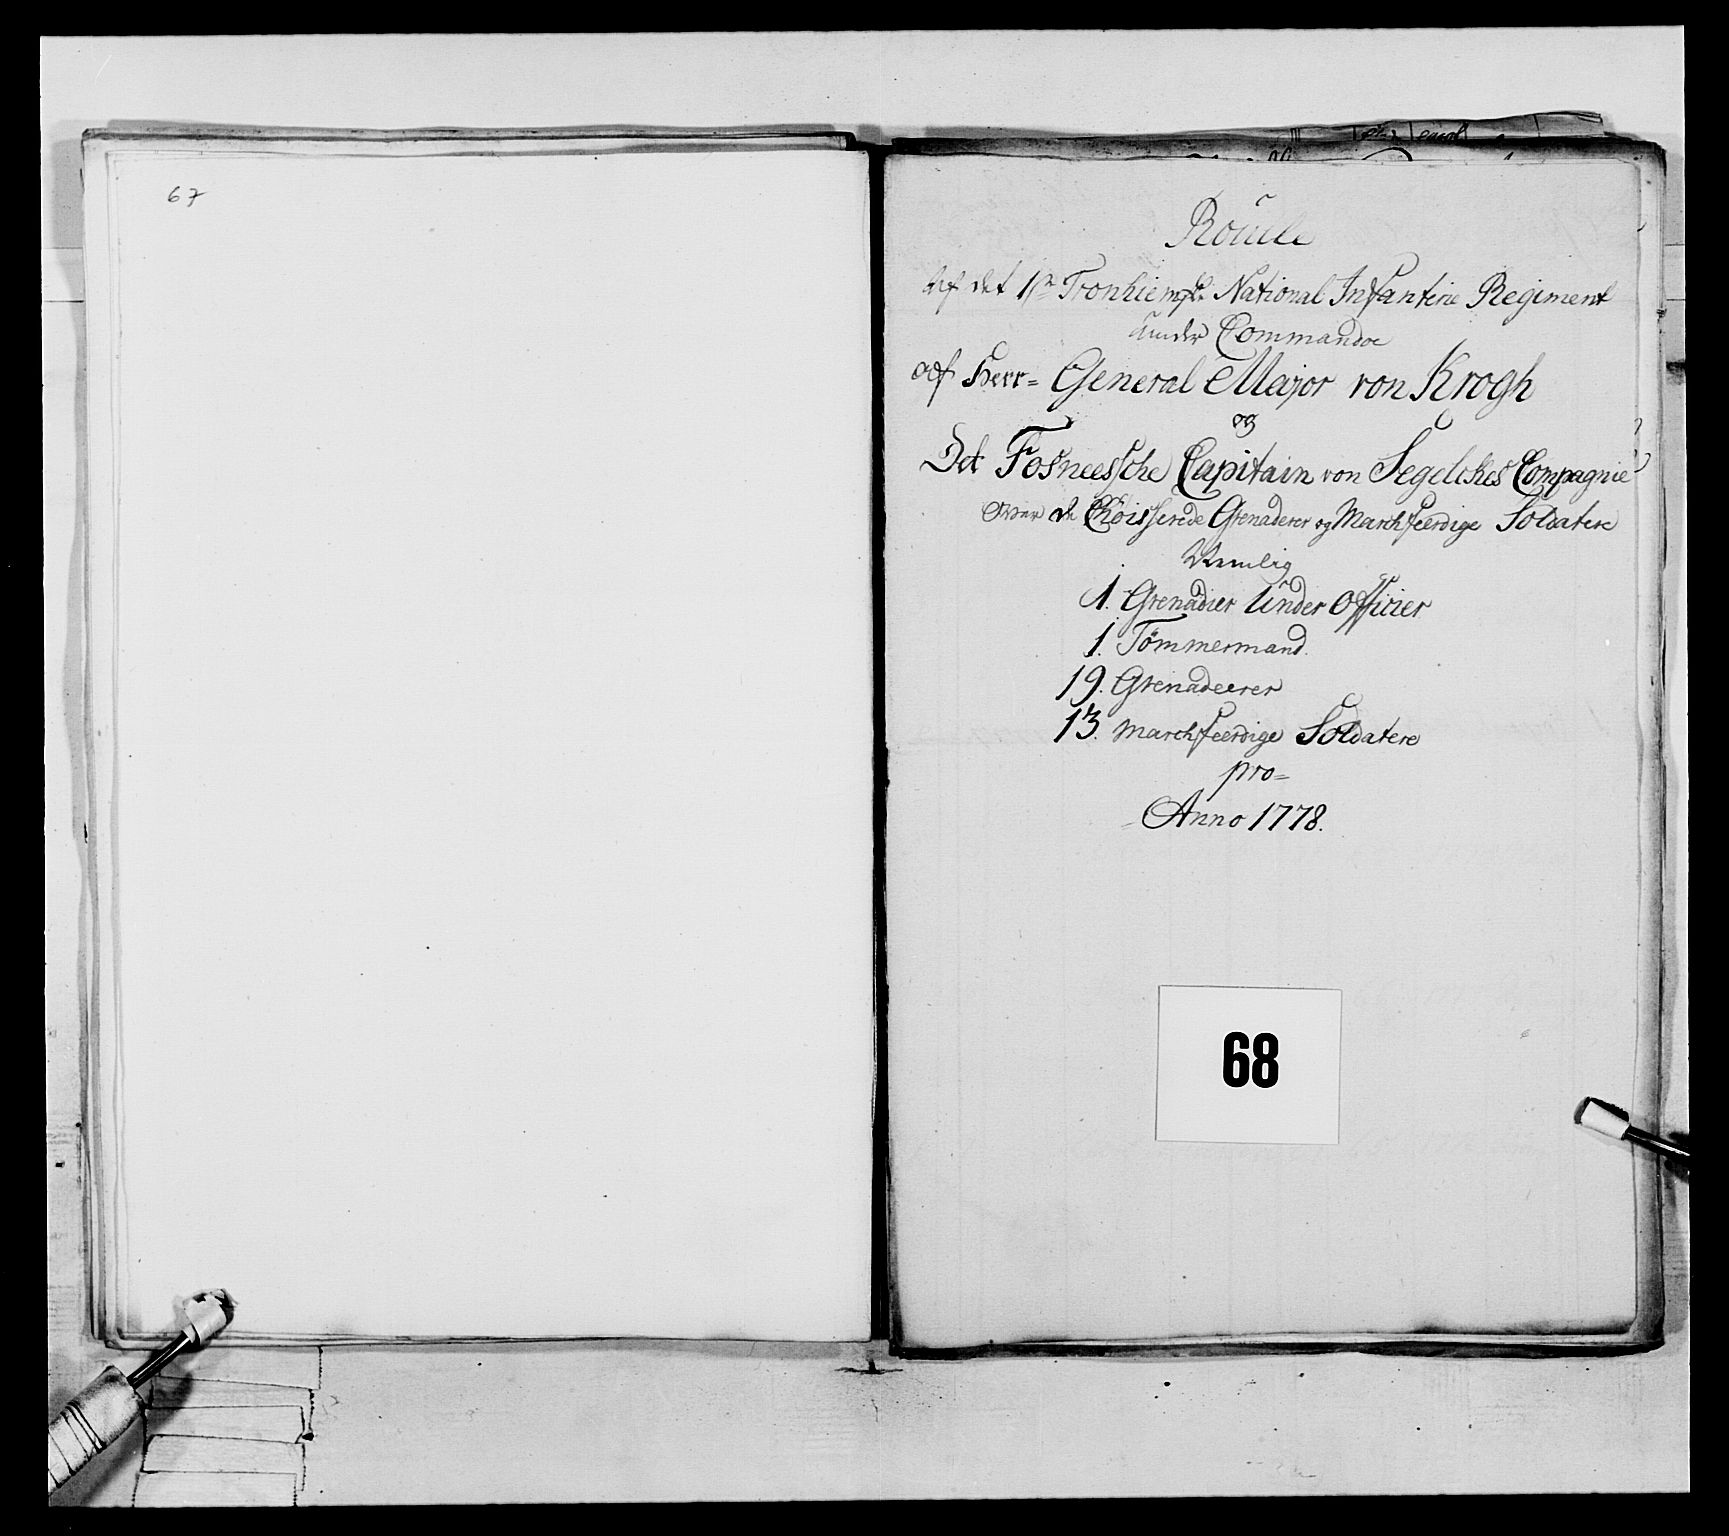 67
Roulle
Af det 1ste Tronhiemske National Infanterie Regiment
under Commandoe
af Herr= General Major von Krogh
og
Det Fosneessche Capitain von Segelckes Compagnie
Over de Chöisserede Grenaderer og Marchfeerdige Soldatere
Nemlig
1. Grenadier Under Officier
1. Tömmermand.
19. Grenadeerer
13. Marchfeerdige Soldatere
pro=
Anno 1778.
68